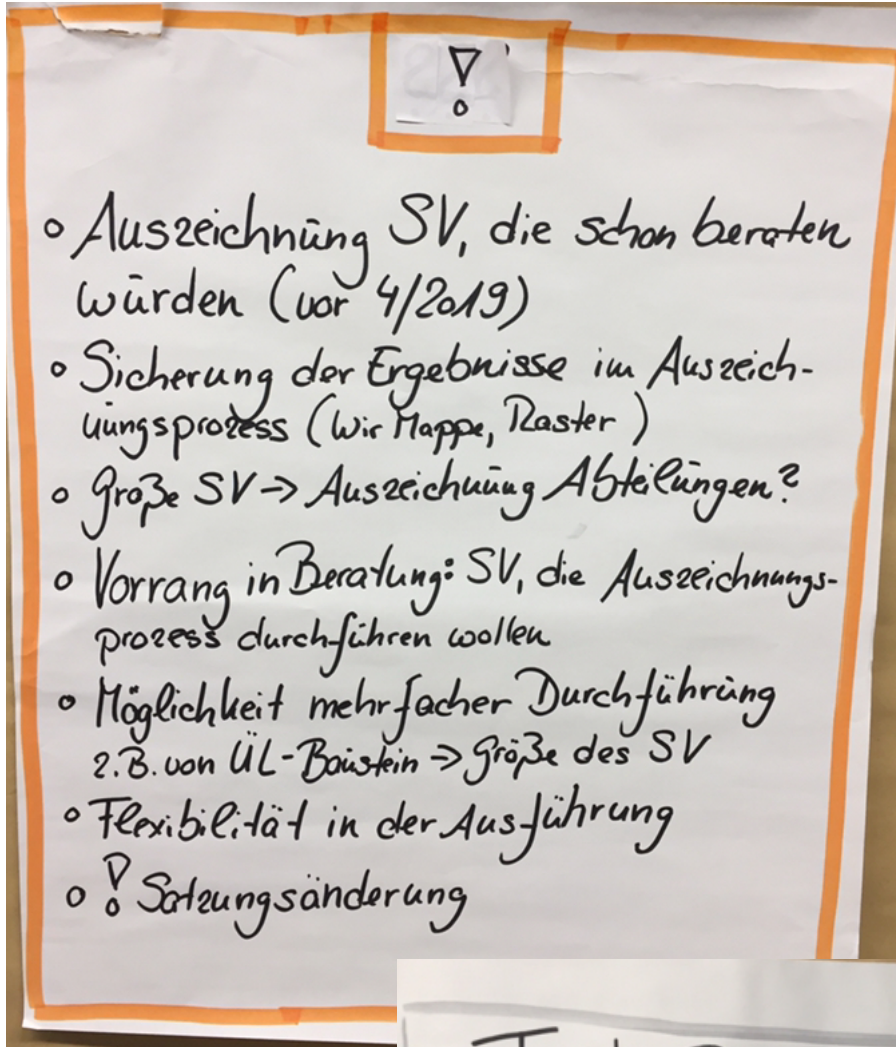 !
• Auszeichnung SV, die schon beraten
wurden (vor 4/2019)
• Sicherung der Ergebnisse im Auszeich-
nungsprozess (Wir Mappe, Raster)
• Große SV → Auszeichnung Abteilungen?
• Vorrang in Beratung: SV, die Auszeichnungs-
prozess durchführen wollen
• Möglichkeit mehrfacher Durchführung
z.B. von ÜL-Baustein ⇒ Größe des SV
• Flexibilität in der Ausführung
• ! Satzungsänderung